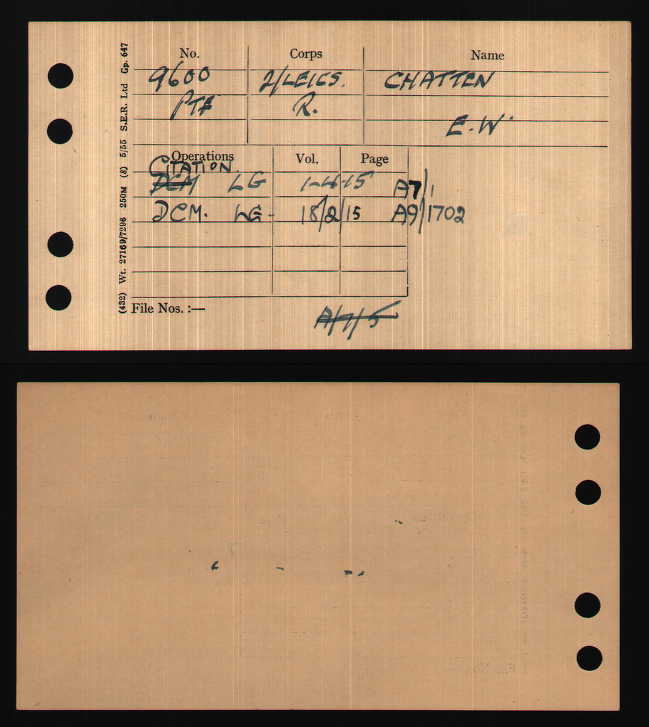 No. Corps Name
9600 2/LEICS. CHATTEN
PTE R.
E.W.
Operations Vol. Page
CITATION.
DCM LG 1-4-15 A7/1
DCM. LG- 18/2/15 A9/1702
File Nos. :—
A/7/5
(432) Wt. 27169/7296 250M (8) 5/55 S.E.R. Ltd Gp. 647